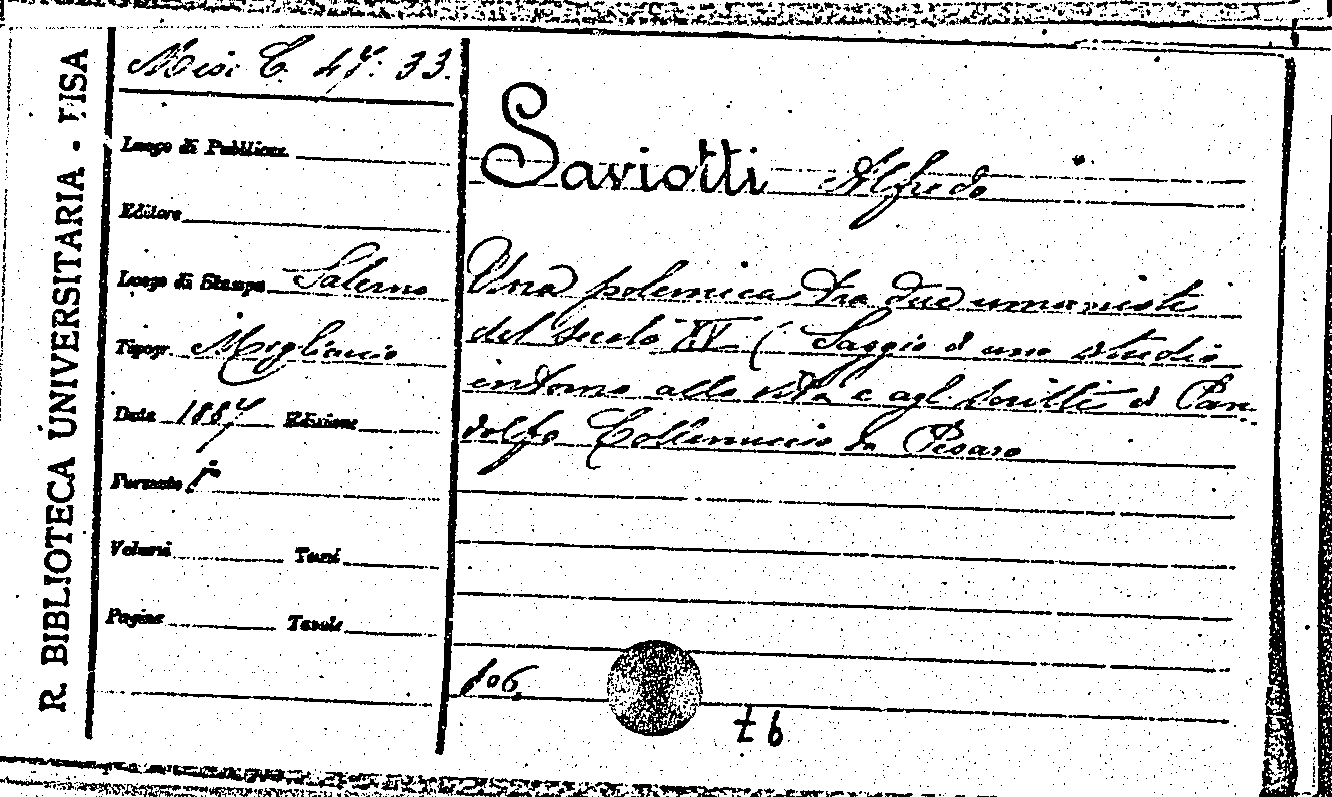 R. BIBLIOTECA UNIVERSITARIA - PISA
Misc C. 47. 33.
Luogo di Pubblicaz.
Editore
Luogo di Stampa Salerno
Tipogr. Migliaccio
Data 1887 Edizione
Formato
Volumi Tomi
Pagine Tavole
Saviotti Alfredo
Una polemica tra due umanisti
del secolo XV (Saggio d' uno studio
intorno alla vita e agli scritti di Pan-
dolfo Collenuccio da Pesaro
106.
t b